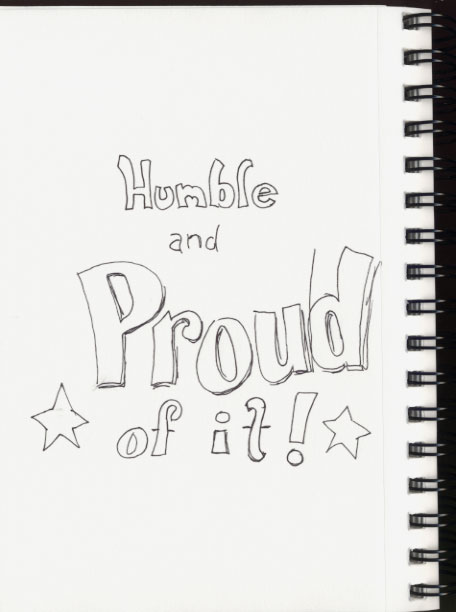 Humble
and
Proud
of it!